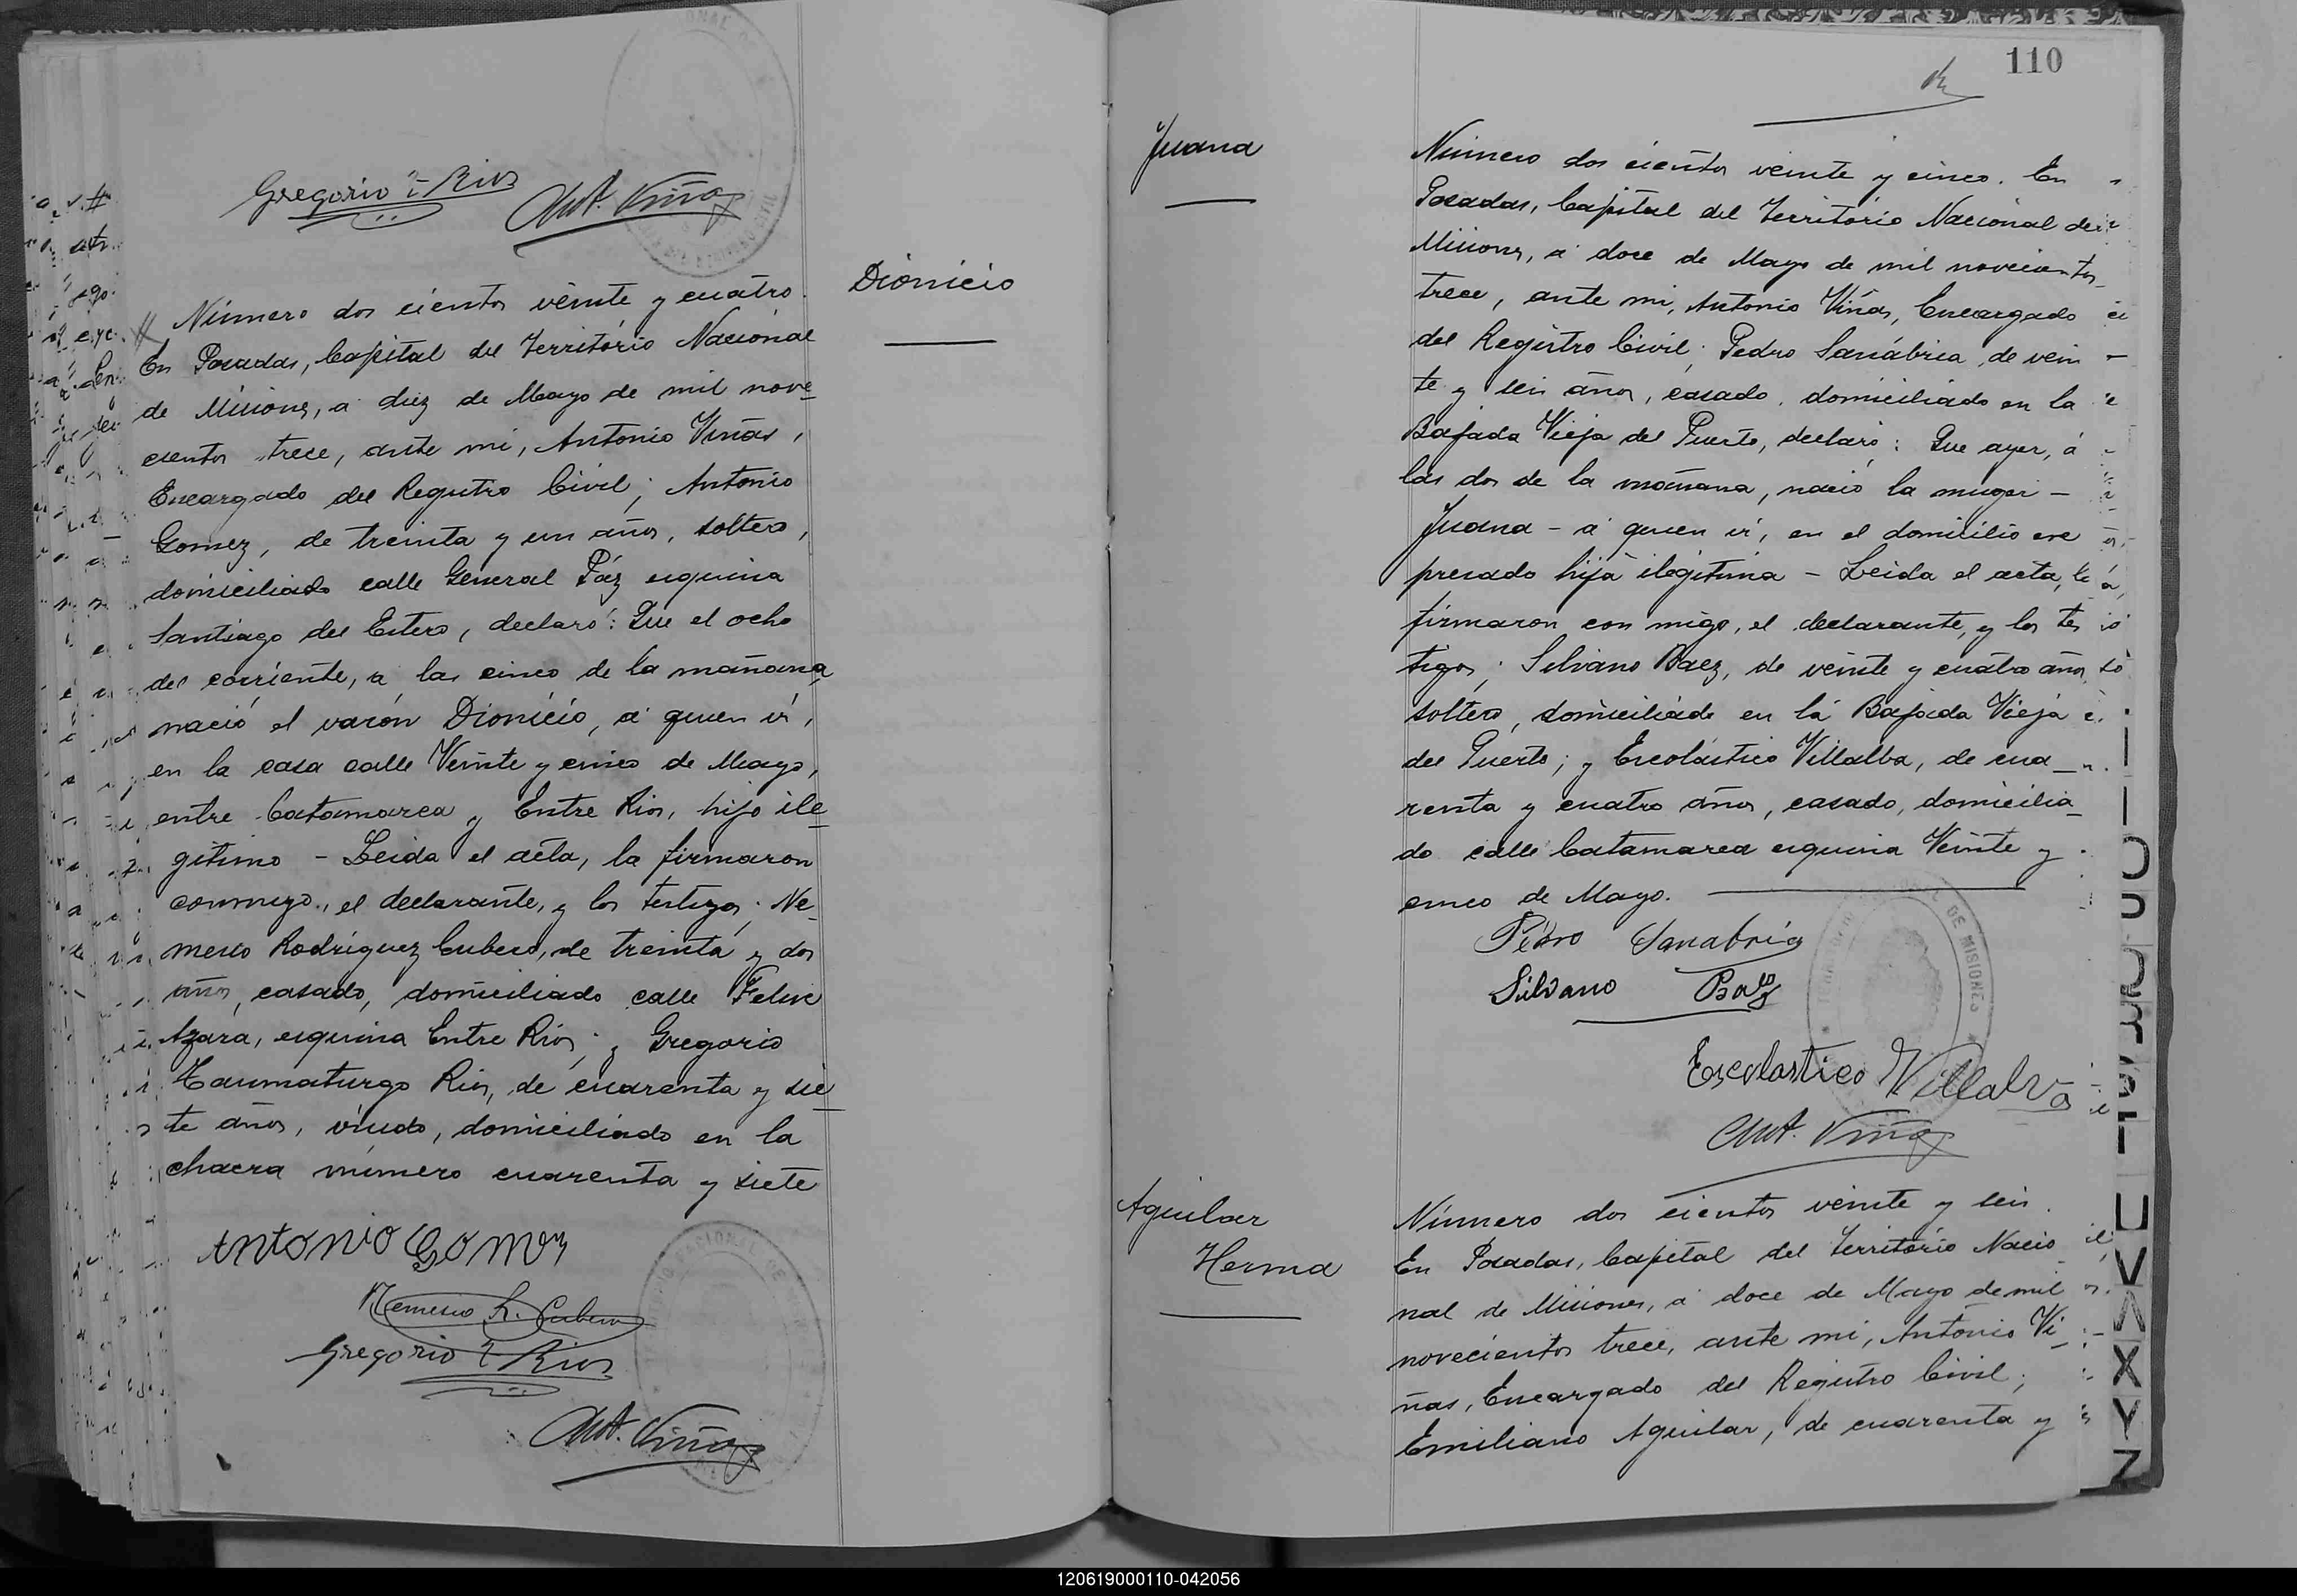 Gregorio T. Rios
Ant. Viñas
Dionicio
Número dos cientos veinte y cuatro.
En Posadas, Capital del Território Nacional
de Misiones, a diez de Mayo de mil nove_
cientos trece, ante mi, Antonio Viñas,
Encargado del Registro Civil; Antonio
Gomez, de treinta y un años, soltero,
domiciliado calle General Páz esquina
Santiago del Estero, declaró: Que el ocho
del corriente, a las cinco de la mañana,
nació el varón Dionicio, a quien vi,
en la casa calle Veinte y cinco de Mayo,
entre Catamarca y Entre Rios, hijo ile_
gitimo - Leida el acta, la firmaron
conmigo, el declarante, y los testigos: Ne_
mesio Rodriguez Cubero, de treinta y dos
años, casado, domiciliado calle Felix
Azara, esquina Entre Rios; y Gregorio
Taumaturgo Rios, de cuarenta y sie_
te años, viudo, domiciliado en la
chacra número cuarenta y siete
Antonio Gomez
Nemesio R. Cubero
Gregorio T. Rios
Ant. Viñas
110
Juana
Número dos cientos veinte y cinco. En
Posadas, Capital del Territorio Nacional de
Misiones, a doce de Mayo de mil novecientos
trece, ante mi, Antonio Viñas, Encargado
del Registro Civil; Pedro Sanábria, de vein
te y seis años, casado, domiciliado en la
Bajada Vieja del Puerto, declaró: Que ayer, á
las dos de la mañana, nació la muger -
Juana - a quien vi, en el domicilio exe
presado hija ilegitima - Leida el acta, la
firmaron con migo, el declarante, y los tes
tigos; Silvano Baez, de veinte y cuatro años,
soltero, domiciliado en la Bajada Vieja
del Puerto; y Escolástico Villalba, de cua_
renta y cuatro años, casado, domicilia_
do calle Catamarca esquina Veinte y
cinco de Mayo.
Pedro Sanabria
Silvano Baez
Escolastico Villalva
Ant. Viñas
Aguilar
Herma
Número dos cientos veinte y seis.
En Posadas, Capital del Território Nacio_
nal de Misiones, a doce de Mayo de mil
novecientos trece, ante mi, Antonio Vi_
ñas, Encargado del Registro Civil;
Emiliano Aguilar, de cuarenta y
U
V
X
Y
Z
DE MISIONES
120619000110-042056